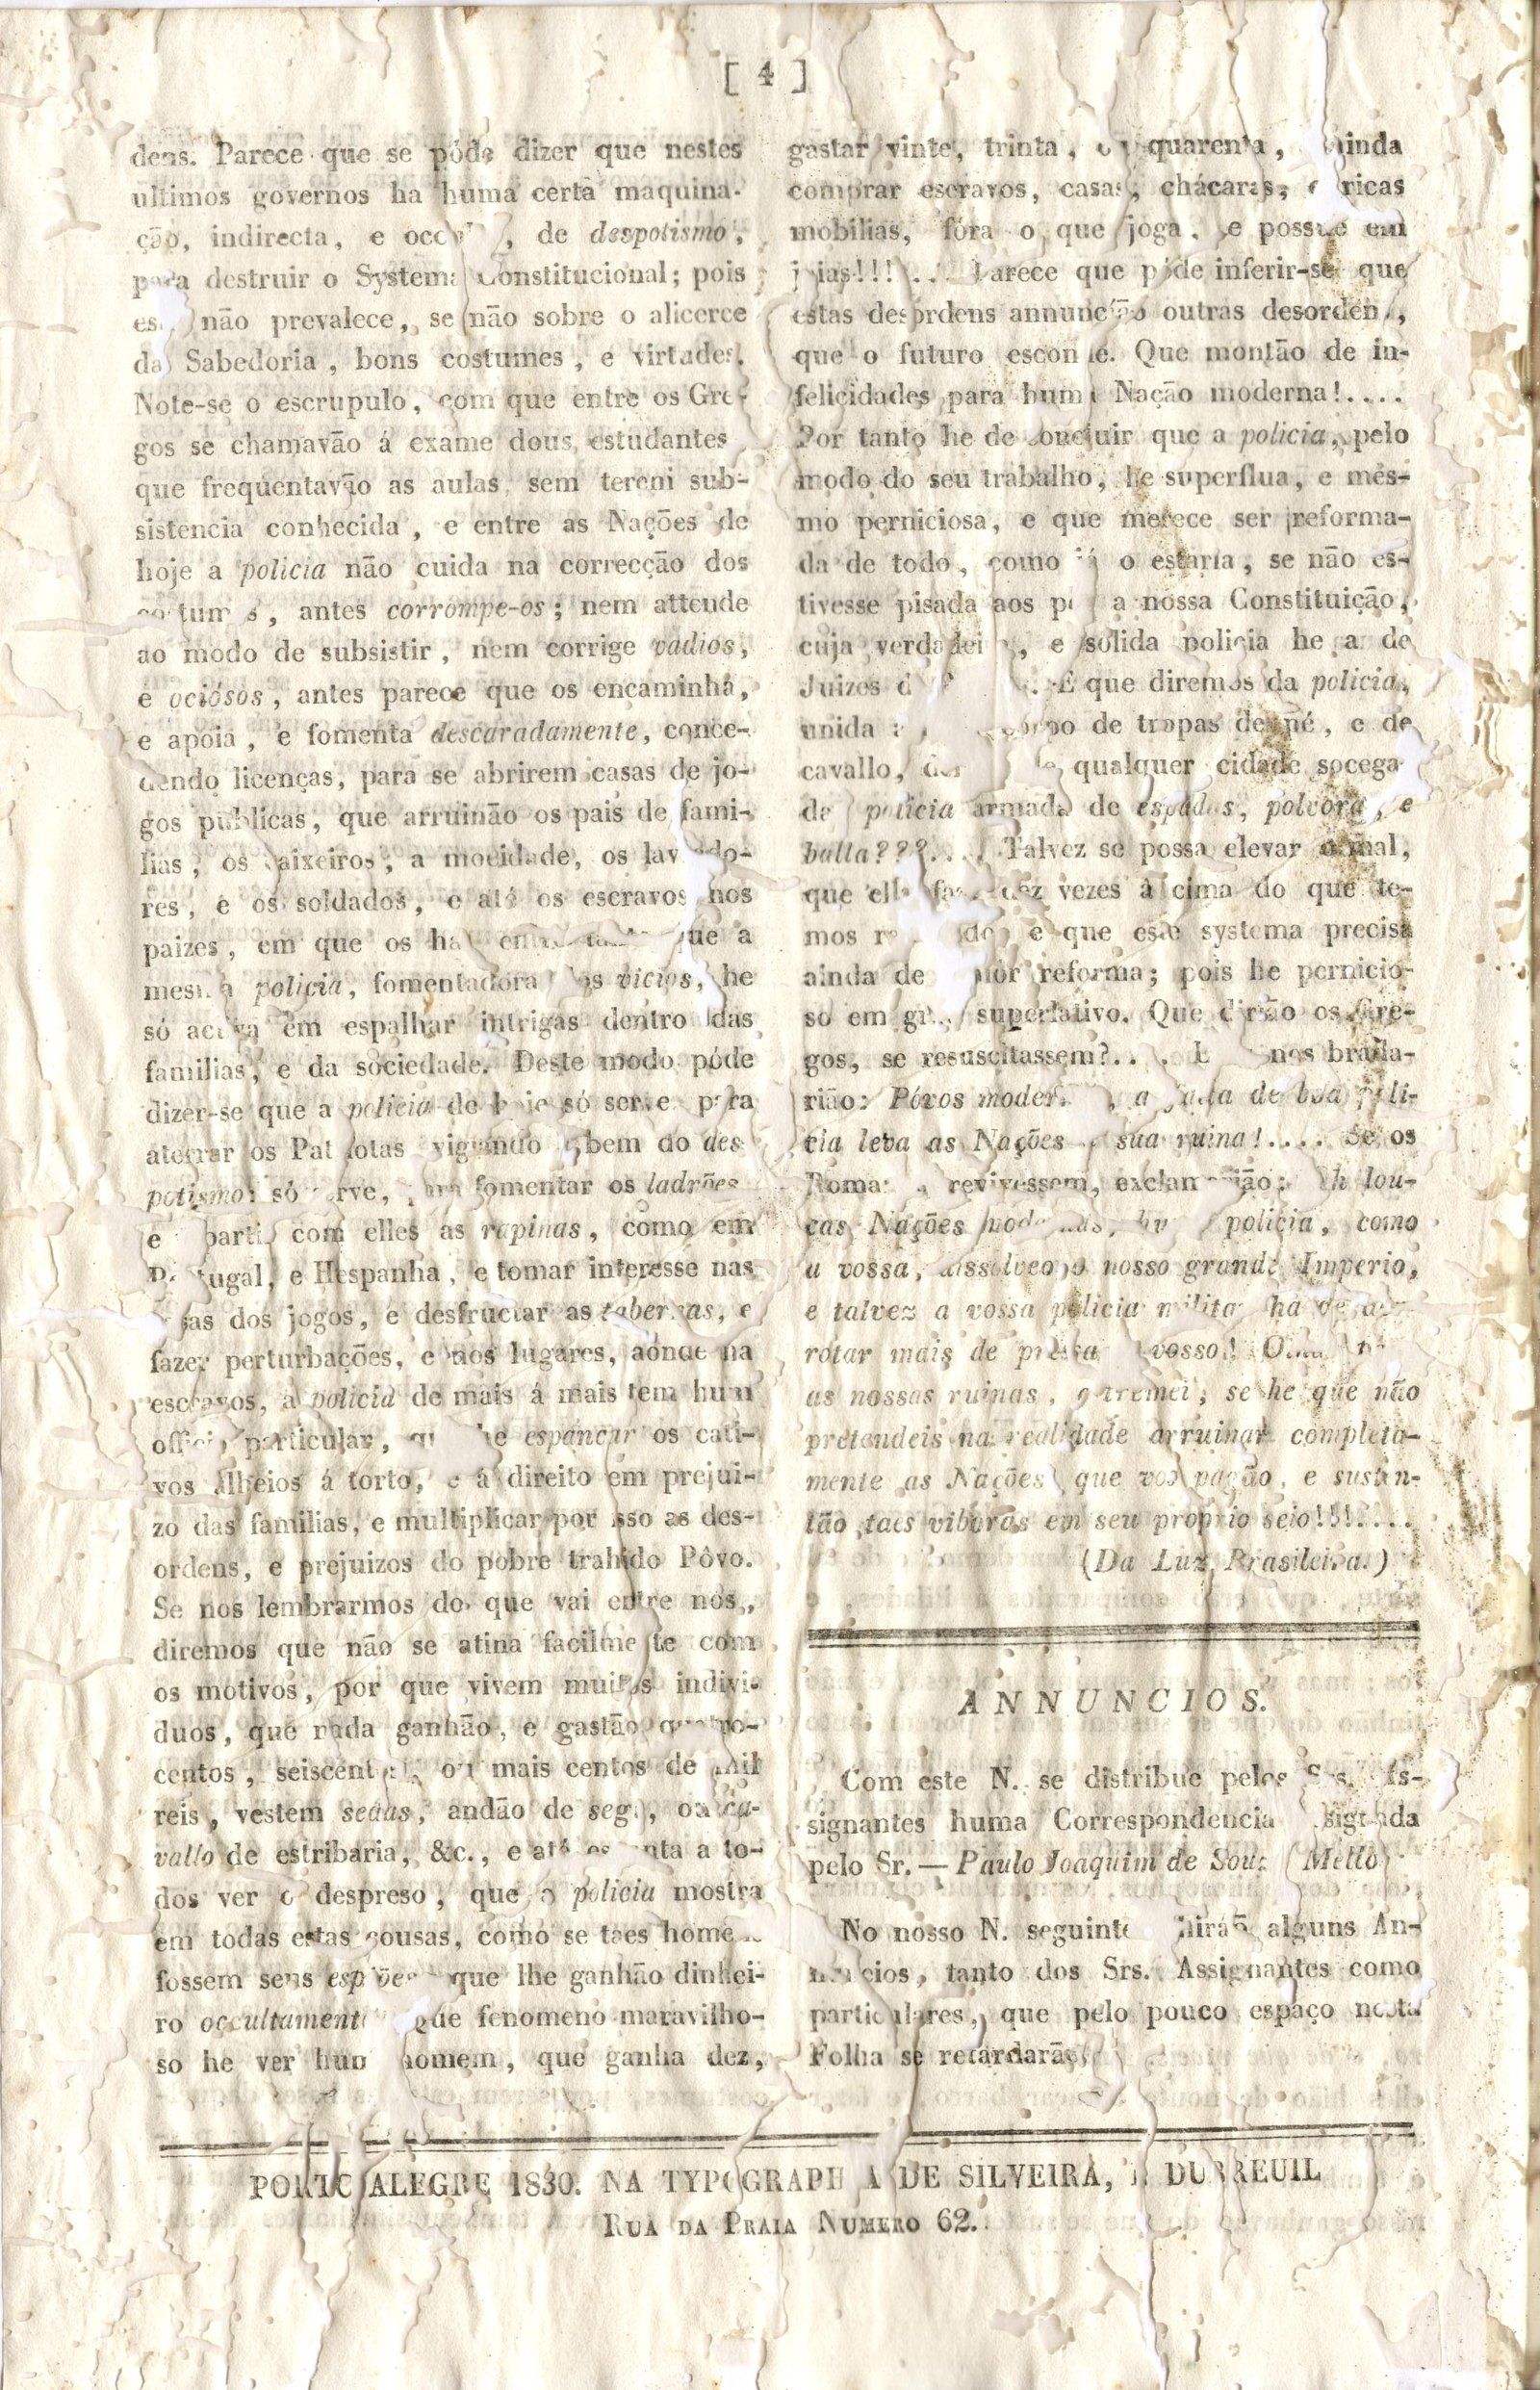 [ 4 ]
dens. Parece que se póde dizer que nestes
ultimos governos ha huma certa maquina-
ção, indirecta, e de despotismo,
para destruir o Systema Constitucional; pois
não prevalece, se não sobre o alicerce
da Sabedoria, bons costumes, e virtudes.
Note-se o escrupulo, com que entre os Gre-
gos se chamavão á exame dous estudantes
que frequentavão as aulas sem terem sub-
sistencia conhecida, e entre as Nações de
hoje a policia não cuida na correcção dos
costumes, antes corrompe-os; nem attende
ao modo de subsistir, nem corrige vadios,
e ociósos, antes parece que os encaminha,
e apoia, e fomenta descaradamente, conce-
dendo licenças, para se abrirem casas de jo-
gos publicas, que arruinão os pais de fami-
lias, os caixeiros, a mocidade, os lavrado-
res, e os soldados, e até os escravos nos
paizes, em que os ha que a
mesma policia, fomentadora dos vicios, he
só activa em espalhar intrigas dentro das
familias, e da sociedade. Deste modo póde
dizer-se que a policia de hoje só serve para
aterrar os Patriotas vigiando o bem do des-
potismo: só serve, para fomentar os ladrões
e partir com elles as rapinas, como em
Portugal, e Hespanha, e tomar interesse nas
casas dos jogos, e desfructar as tabernas, e
fazer perturbações, e nos lugares, aonde ha
escravos, a policia de mais á mais tem hum
officio particular, que he espancar os cati-
vos alheios á torto, e á direito em prejui-
zo das familias, e multiplicar por isso as des-
ordens, e prejuizos do pobre trahido Pôvo.
Se nos lembrarmos do que vai entre nós,
diremos que não se atina facilmente com
os motivos, por que vivem muitos indivi-
duos, que nada ganhão, e gastão quatro-
centos, seiscentos, ou mais centos de mil
reis, vestem sedas, andão de sege, ou ca-
vallo de estribaria, &c., e até espanta a to-
dos ver o despreso, que a policia mostra
em todas estas cousas, como se taes homens
fossem seus espiões que lhe ganhão dinhei-
ro occultamente que fenomeno maravilho-
so he ver hum homem, que ganha dez,
gastar vinte, trinta, ou quarenta, ainda
comprar escravos, casas, chácaras, e ricas
mobilias, fóra o que joga, e possue em
joias!!!... Parece que póde inferir-se que
estas desordens annuncião outras desordens,
que o futuro esconde. Que montão de in-
felicidades para huma Nação moderna!....
Por tanto he de concluir que a policia, pelo
modo do seu trabalho, he superflua, e més-
mo perniciosa, e que merece ser reforma-
da de todo, como já o estaria, se não es-
tivesse pisada aos pés a nossa Constituição,
cuja verdadeira, e solida policia he a de
Juizes E que diremos da policia,
unida corpo de tropas de pé, e de
cavallo, qualquer cidade socega-
da policia armada de espadas, polvora, e
balla???... Talvez se possa elevar o mal,
que ella faz dez vezes á cima do que te-
mos e que este systema precisa
ainda de maior reforma; pois he pernicio-
so em grao superlativo. Que dirião os Gre-
gos, se resuscitassem?.... nos brada-
rião: Póvos modernos, a falta de boa poli-
cia leva as Nações á sua ruina!.... Se os
Romanos revivessem, exclamarião: Oh lou-
cas Nações modernas, huma policia, como
a vossa, dissolveo o nosso grande Imperio,
e talvez a vossa policia militar ha de der-
rotar mais de pressa o vosso!
as nossas ruinas, e tremei, se he que não
pretendeis na realidade arruinar completa-
mente as Nações, que vos pagão, e susten-
tão taes viboras em seu proprio seio!!!....
(Da Luz Brasileira.)
ANNUNCIOS.
Com este N. se distribue pelos Srs. As-
signantes huma Correspondencia assignada
pelo Sr. — Paulo Joaquim de Souza Mello
No nosso N. seguinte sahiráõ alguns An-
nuncios, tanto dos Srs. Assignantes como
particulares, que pelo pouco espaço nesta
Folha se retardarão
PORTO ALEGRE 1830. NA TYPOGRAPHIA DE SILVEIRA, E DUBREUIL
RUA DA PRAIA NUMERO 62.